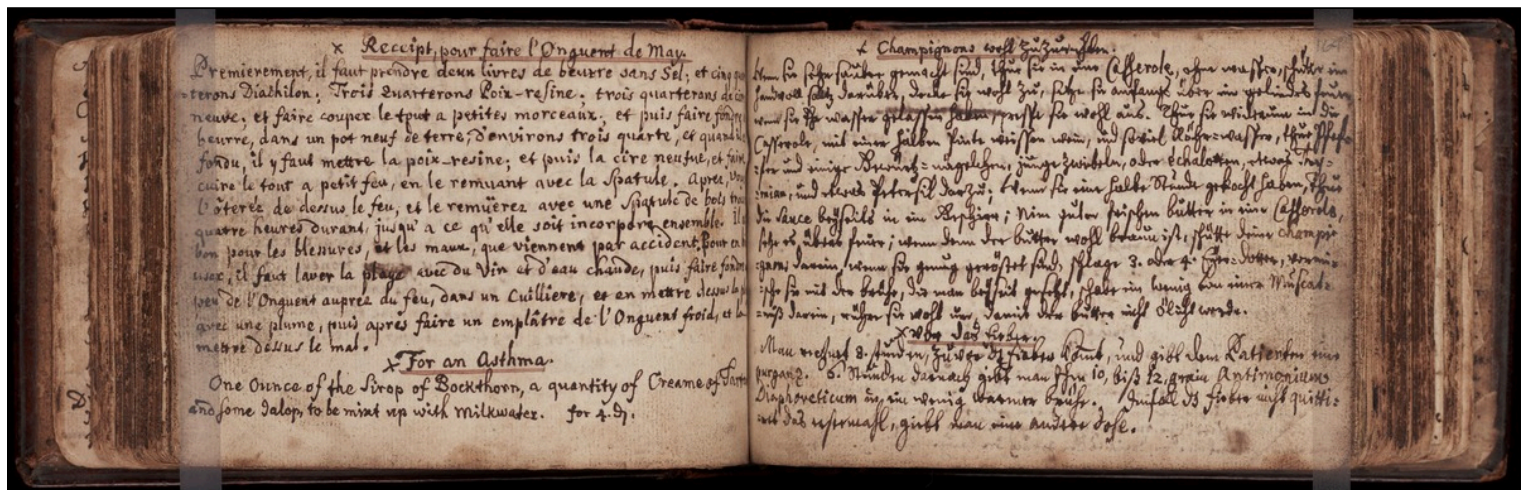 × Receipt, pour faire l'Onguent de May.
Premierement, il faut prendre deux livres de beurre sans Sel; et cinq
=terons Diachilon; Trois Quarterons Poix-resine; trois quarterons de
neuve; et faire couper le tout a petites morceaux; et puis faire fondre
beurre, dans un pot neuf de terre, d'environs trois quarte, et quand
fondu, il y faut mettre la poix-resine; et puis la cire neufue, et faire
cuire le tout a petit feu, en le remuant avec la Spatule. Apres,
l'ôterée de dessus le feu, et le remuërez avec une Spatule de bois
quatre heures durant, jusqu'a ce qu'elle soit incorporé ensemble. Il
bon pour les blessures, et les maux, que viennent par accident, Pour en
user, il faut laver la playe avec du Vin et d'eau chaude, puis faire fondre
peu de l'Onguent auprez du feu, dans un Cuilliere, et en mettre dessus la
avec une plume, puis apres faire un emplâtre de l'Onguent froid, et la
mettre dessus le mal.
× For an Asthma.
One Ounce of the Sirop of Bockthorn, a quantity of Creame of Tart
and some Jalop, to be mixt up with Milkwater. for 4. d.
× Champignons wohl zuzurichten.
Wenn sie sehr sauber gemacht sind, thue sie in eine Casserole, ohne wasser, schütte ein
handvoll saltz darüber, decke sie wohl zu, setze sie anfangs über ein gelindes feuer
wenn sie Ihr wasser gelassen haben, presse sie wohl aus. Thue sie wiedrum in die
Casserole, mit einer halben Pinte weissen wein, und soviel
und einige junge zwiebeln, oder Echalotten, etwas Thy=
=mian, und etwas Petersil darzu; Wenn sie eine halbe Stunde gekocht haben, Thue
die Sauce beyseits in ein Geschirr; Nim guten frischen butter in eine Casserole,
setze es übers feuer; wenn denn der butter wohl braun ist, schütte deine champi=
gnons darein, wenn sie genug geröstet sind, schlage 3. oder 4. Eyer=dotter, vermi=
=sche sie mit der brühe, die man beyseit gesetzt, schabe ein wenig von einer Muscat=
=nuß darein, rühre sie wohl um, damit der butter nicht Ölicht werde.
× Vor das Fieber.
Man rechnet 8. stunden, zuvor das fieber komt, und gibt dem Patienten eine
purganz. 6. Stunden darnach gibt man Ihm 10, biß 12. gran Antimonium
Diaphoreticum in ein wenig warmer brühe. Imfall das fieber nicht quitti=
=ret das erstemahl, giebt man eine andere dose.